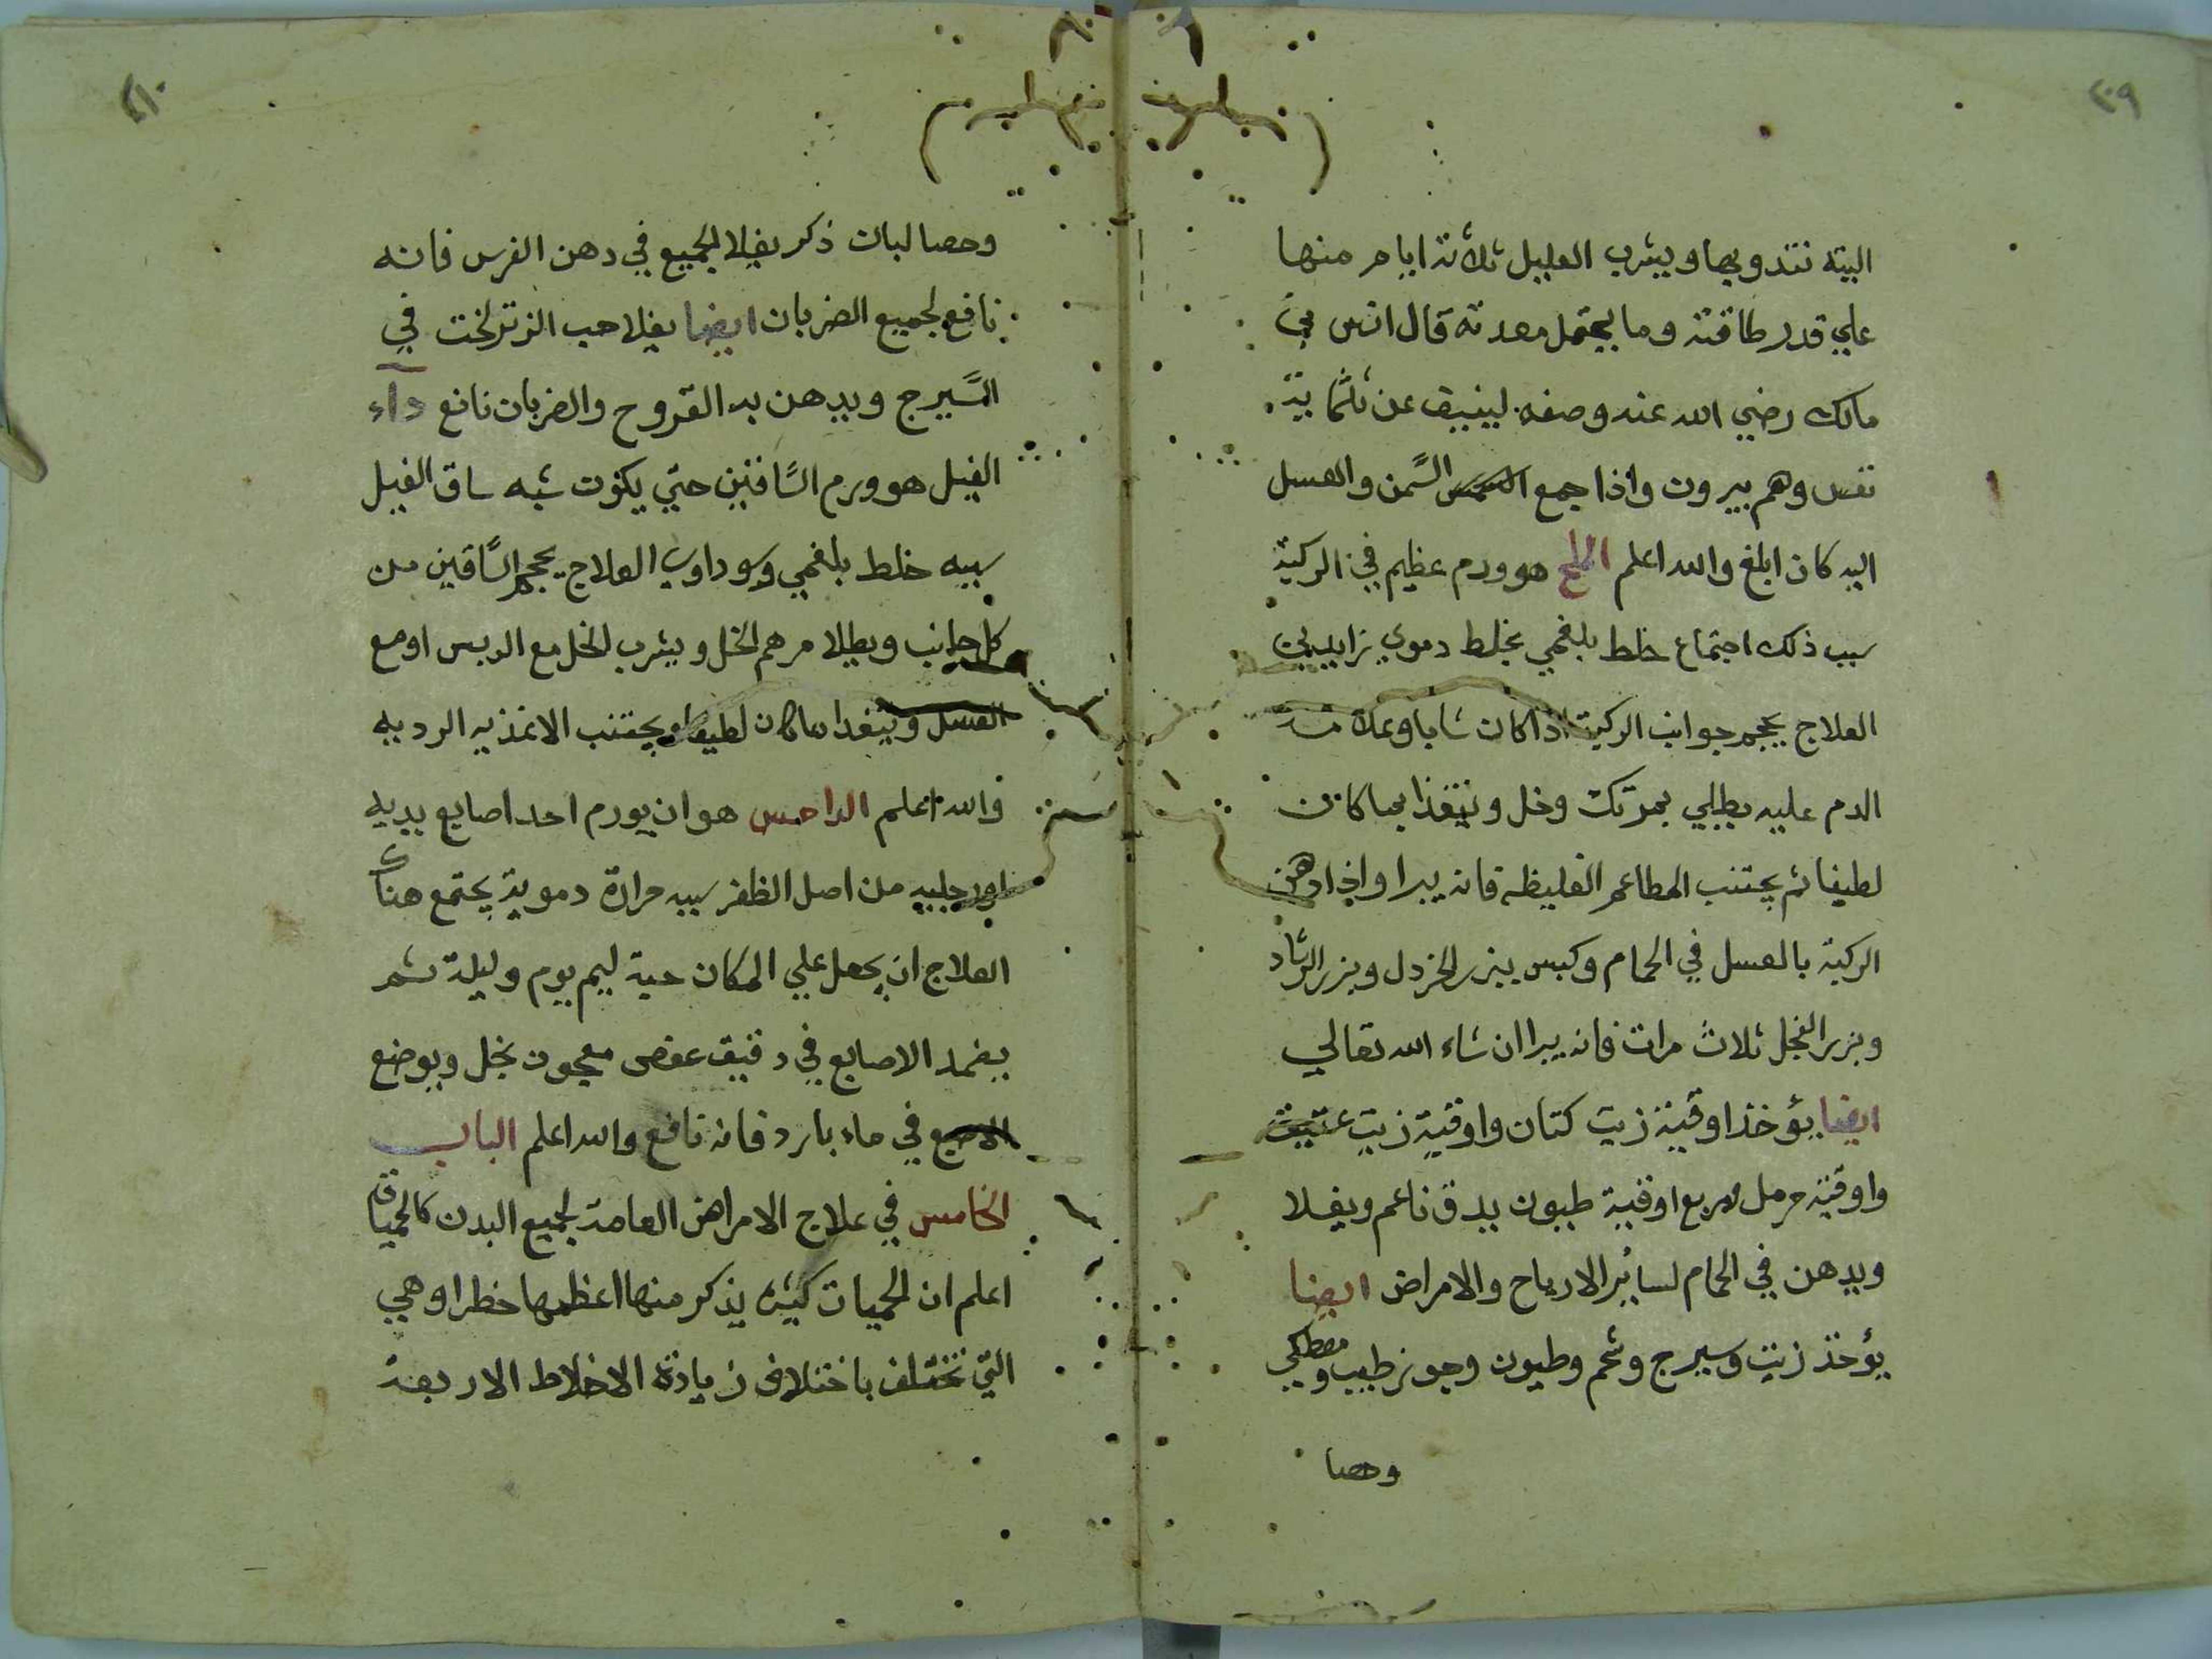 ٢٠٩
البته نتدوبها ويشرب العليل ثلاثة ايام منها
علي قدر طاقته وما يحتمل معدته قال انس بن
مالك رضي الله عنه وصفه لينيف عن ثلثماية
نفس وهم يبرون واذا جمع السمن والعسل
اليه كان ابلغ والله اعلم هو ورم عظيم في الركبة
سبب ذلك اجتماع خلط بلغمي بخلط دموي
العلاج يحجم جوانب الركبة اذا كان شابا وعلامة
الدم عليه يطلي بمرتك وخل ونتغذا بما كان
لطيفا ثم يجتنب المطاعم الغليظه فانه يبرا واذا دهن
الركبة بالعسل في الحمام وكبس ببزر الخردل وبزر الرشاد
وبزر الفجل ثلاث مرات فانه يبرا ان شاء الله تعالي
ايضا يؤخذ اوقية زيت كتان واوقية زيت عتيق
واوقية حرمل وربع اوقية طيون يدق ناعم ويغلا
ويدهن في الحمام لساير الارياح والامراض ايضا
يؤخذ زيت وسيرج وشحم وطيون وجوز طيب ومصطكي
وحصا
٢١٠
وحصا لبان ذكر يغلا الجميع في دهن الفرس فانه
نافع لجميع الضربان ايضا يغلا حب الزنزلخت في
السيرج ويدهن به القروح والضربان نافع داء
الفيل هو ورم الساقين حتي يكون شبه ساق الفيل
سببه خلط بلغمي وسوداوي العلاج يحجم الساقين من
كل جانب ويطلا مرهم الخل ويشرب الخل مع الدبس او مع
العسل ويتغدا ما كان لطيفا ويجتنب الاغذيه الرديه
والله اعلم الداحس هو ان يورم احد اصابع يديه
او رجليه من اصل الظفر سببه حرارة دموية يجتمع هناك
العلاج ان يجعل علي المكان حية ليم يوم وليلة ثم
يضمد الاصابع في دقيق عفص معجون بخل ويوضع
الاصبع في ماء بارد فانه نافع والله اعلم الباب
الخامس في علاج الامراض العامة لجميع البدن كالحميات
اعلم ان الحميات كثيره يذكر منها اعظمها خطرا وهي
التي تختلف باختلاف زيادة الاخلاط الاربعة